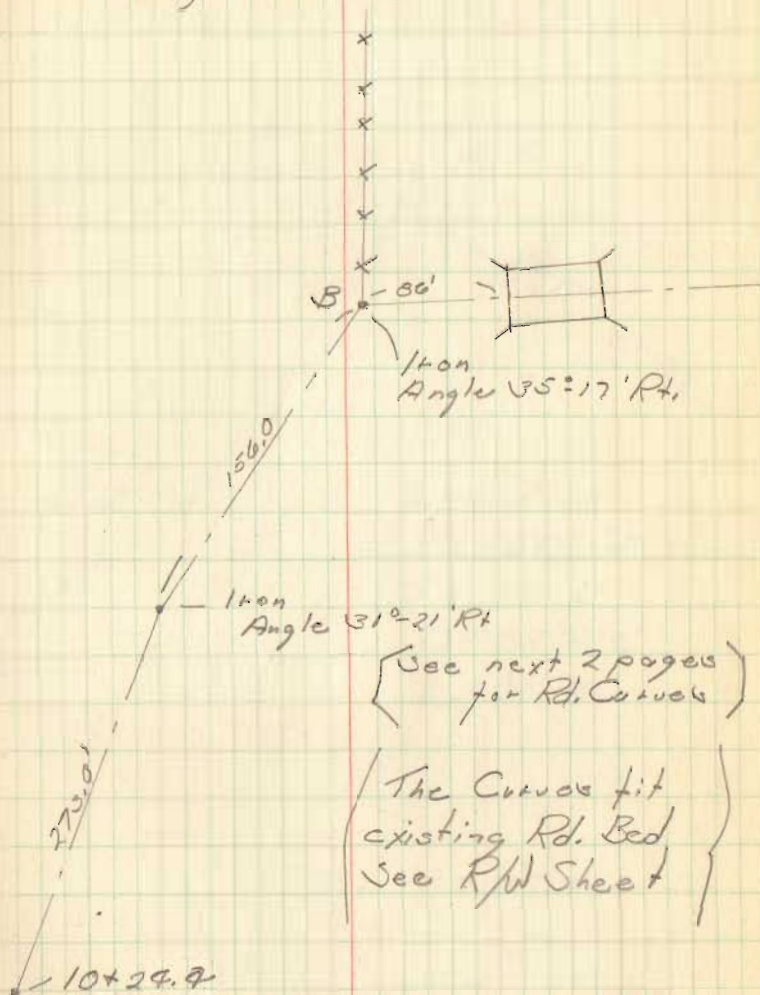 B
86'
Iron
Angle 35°17' Rt.
156.0
Iron
Angle 31°-21' Rt
(See next 2 pages
for Rd. Curves)
273.0'
(The Curves fit
existing Rd. Bed
See R/W Sheet)
10+24.4